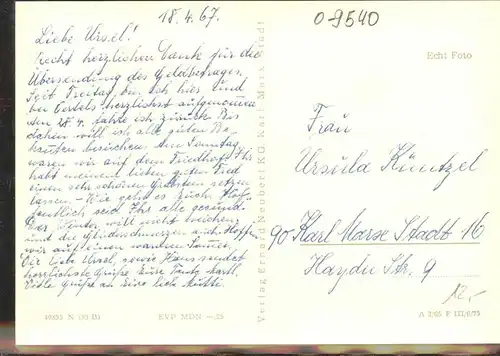 18.4.67.
0-9540
Liebe Ursel!
Recht herzlichen Dank für die
Übersendung des Geldbetrages.
Seit Freitag bin ich hier und
bei Oertels herzlichst aufgenommen
den 28.4. fahre ich zurück. Bis
dahin will ich alle guten Be-
kannten besuchen. Am Sonntag
waren wir auf dem Friedhof. Ihr
habt meinem lieben guten
einen sehr schönen Grabstein setzen
lassen. Wie geht es Euch? Hof-
fentlich seid Ihr alle gesund.
Der Winter will nicht weichen
und die auch. Hoffen
wir auf einen warmen Sommer.
Dir liebe Ursel, sowie Hans sendet
herzlichste Grüße Eure Tante
Viele Grüße an Eure liebe Mutti.
Echt Foto
Frau
Ursula Küntzel
90 Karl Marx Stadt 16
Haydn Str. 9
12,-
Verlag Erhard Neubert KG. Karl-Marx-Stadt
EVP MDN —,20